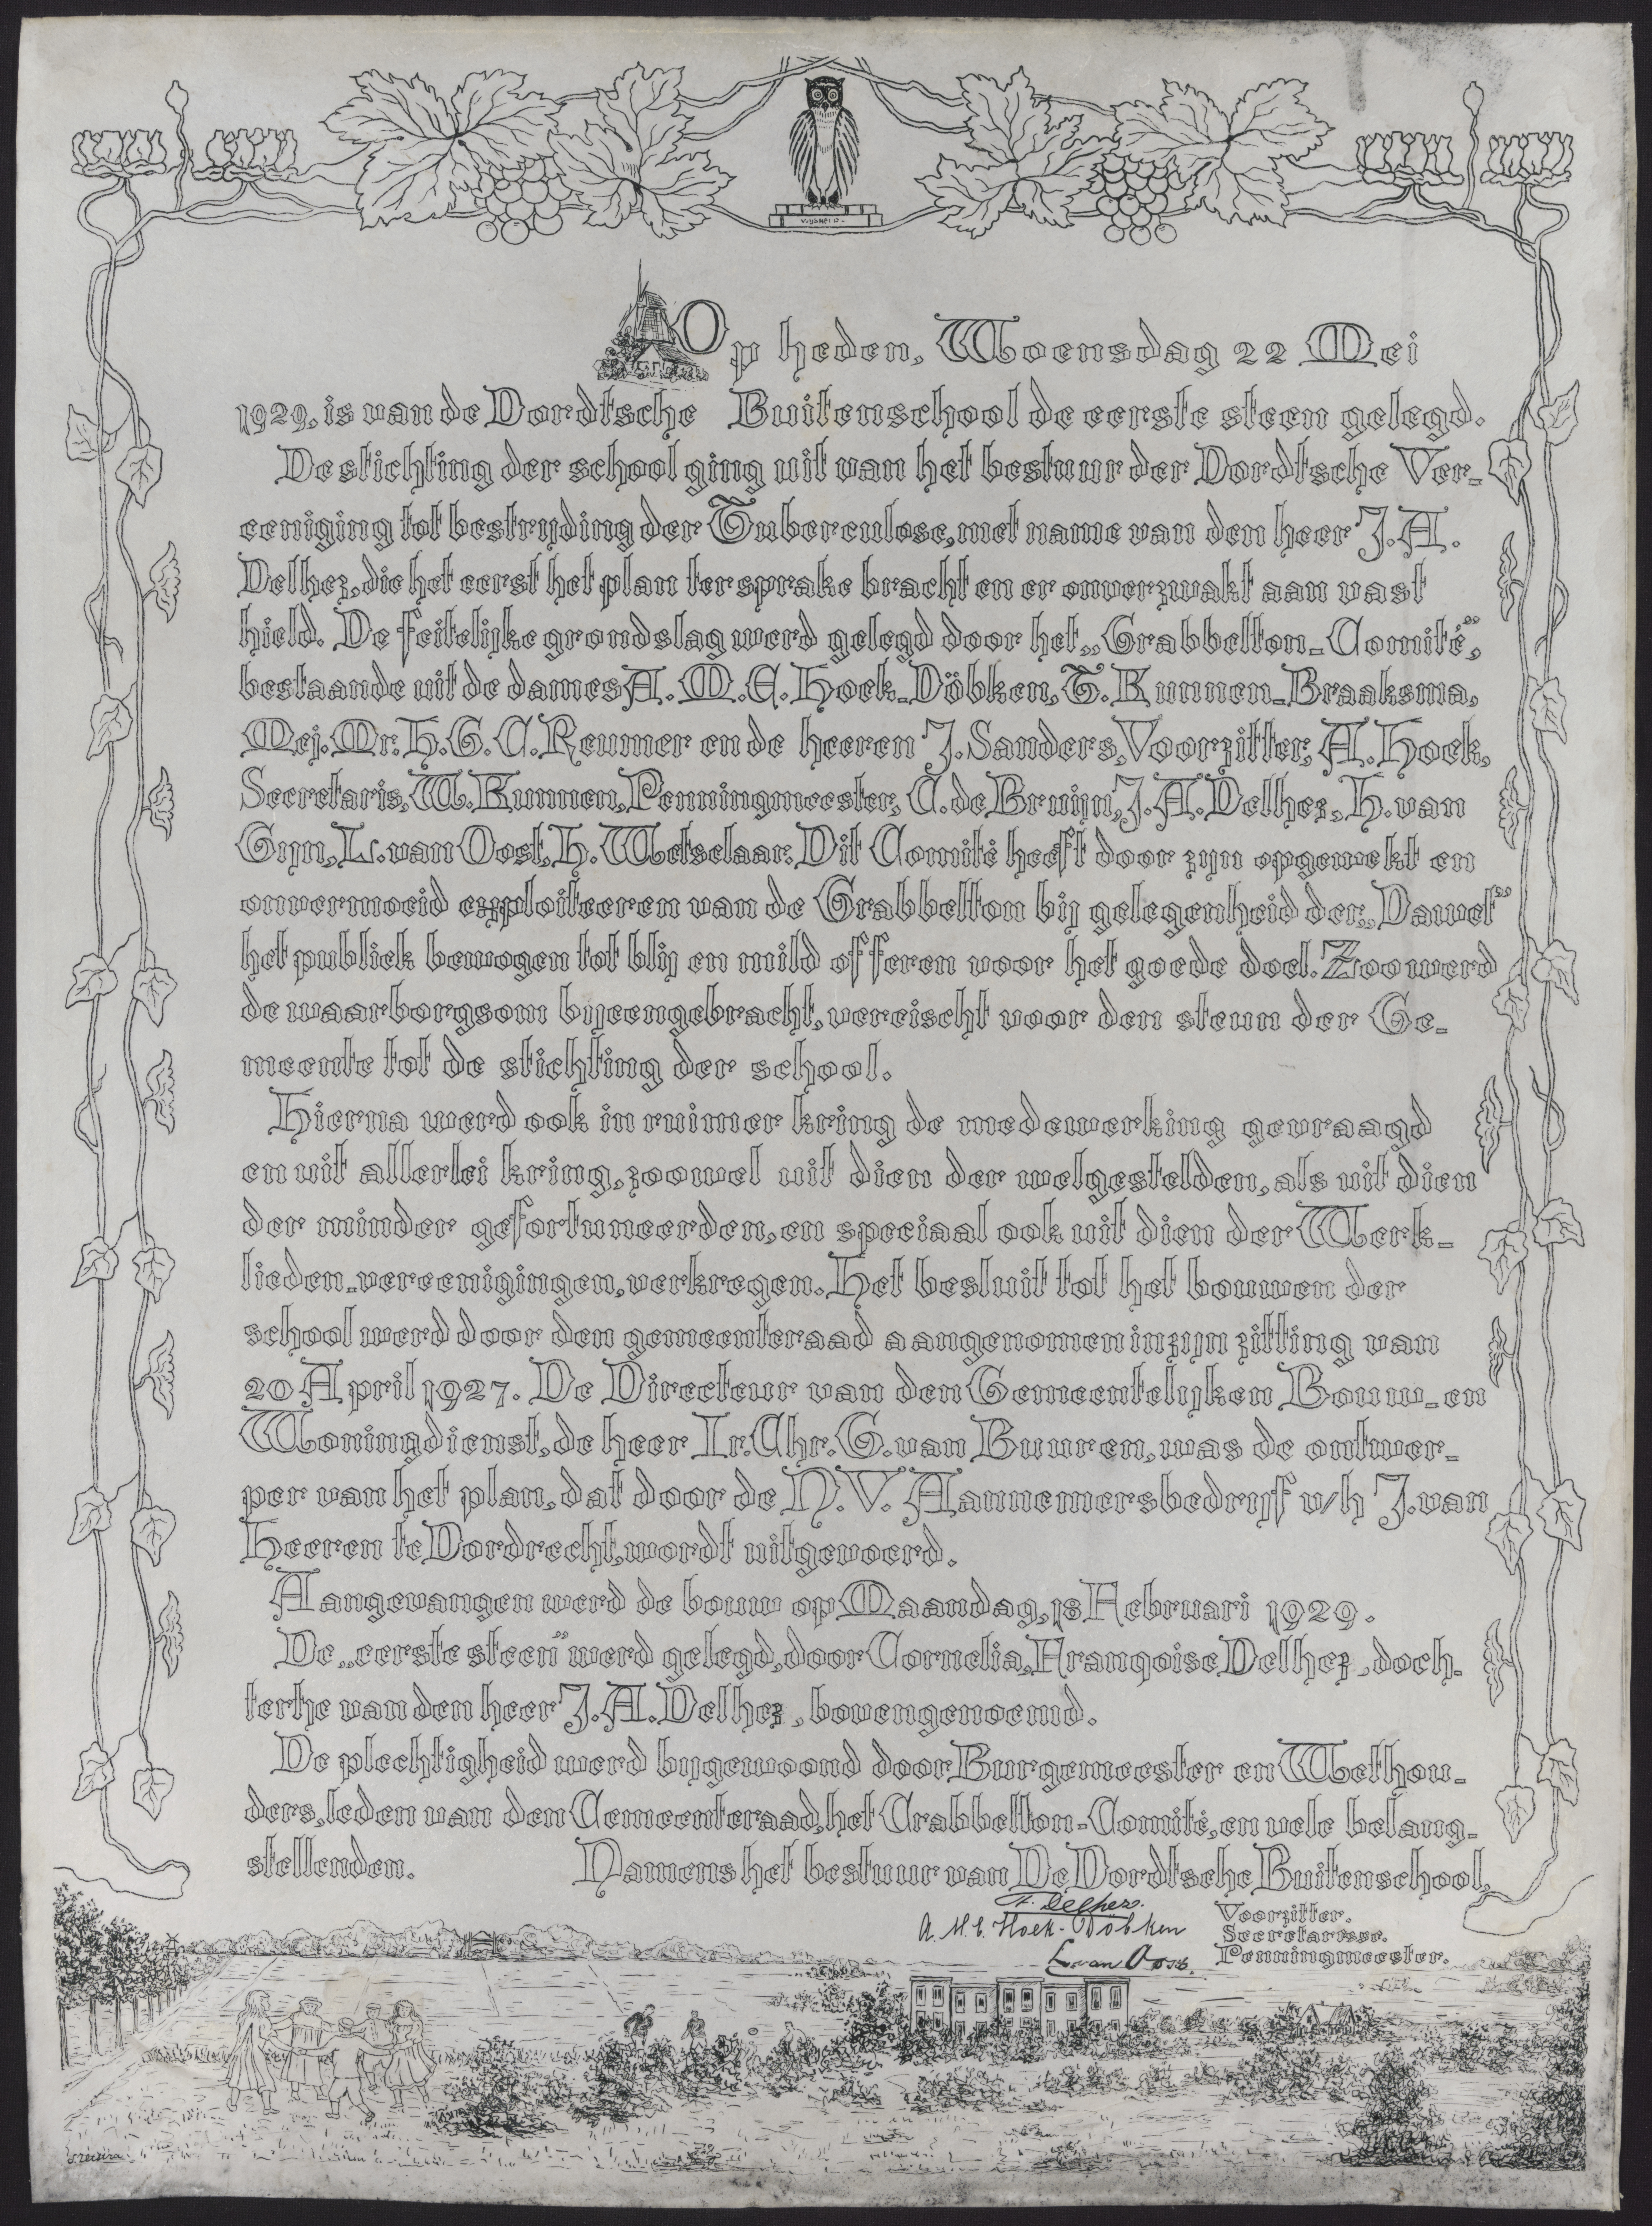 Op heden, Woensdag 22 Mei
1929, is van de Dordtsche Buitenschool de eerste steen gelegd.
De stichting der school ging uit van het bestuur der Dordtsche Ver-
eeniging tot bestrijding der Tuberculose, met name van den heer J.A.
Delhez, die het eerst het plan ter sprake bracht en er onverzwakt aan vast
hield. De feitelijke grondslag werd gelegd door het „Grabbelton-Comité",
bestaande uit de dames A.M.E. Hoek-Döbken, T. Kunnen-Braaksma,
Mej. Mr. H.G.C. Reumer en de heeren J. Sanders, Voorzitter, A. Hoek,
Secretaris, W. Kunnen, Penningmeester, C. de Bruijn, J.A. Delhez, H. van
Gijn, L. van Oost, H. Wetselaar. Dit Comité heeft door zijn opgewekt en
onvermoeid exploiteeren van de Grabbelton bij gelegenheid der „Dawet"
het publiek bewogen tot blij en mild offeren voor het goede doel. Zoo werd
de waarborgsom bijeengebracht, vereischt voor den steun der Ge-
meente tot de stichting der school.
Hierna werd ook in ruimer kring de medewerking gevraagd
en uit allerlei kring, zoowel uit dien der welgestelden, als uit dien
der minder gefortuneerden, en speciaal ook uit dien der Werk-
lieden-vereenigingen, verkregen. Het besluit tot het bouwen der
school werd door den gemeenteraad aangenomen in zijn zitting van
20 April 1927. De Directeur van den Gemeentelijken Bouw- en
Woningdienst, de heer Ir. Chr. G. van Buuren, was de ontwer-
per van het plan, dat door de N.V. Aannemersbedrijf v/h J. van
Heeren te Dordrecht, wordt uitgevoerd.
Aangevangen werd de bouw op Maandag, 18 Februari 1929.
De „eerste steen" werd gelegd, door Cornelia, Françoise Delhez, doch-
tertje van den heer J.A. Delhez, bovengenoemd.
De plechtigheid werd bijgewoond door Burgemeester en Wethou-
ders, leden van den Gemeenteraad, het Grabbelton-Comité, en vele belang-
stellenden. Namens het bestuur van De Dordtsche Buitenschool,
Delhez. Voorzitter.
A.M.E. Hoek-Döbken Secretaresse.
L. van Oost. Penningmeester.